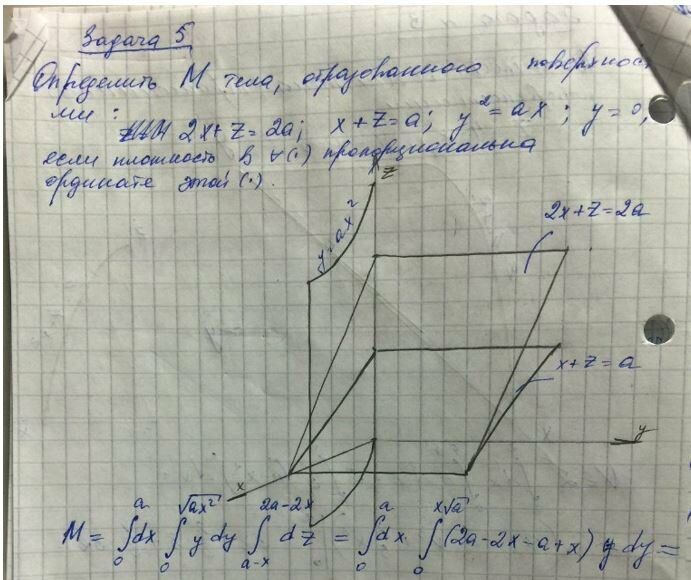 Задача 5
Определить М тела, образованного поверхностя
ми : 2x+z=2a; x+z=a; y²=ax; y=0,
если плотность в ∀(·) пропорциональна
ординате этой (·).
z
y=ax²
2x+z=2a
x+z=a
y
x
M = ∫₀ᵃ dx ∫₀^√(ax²) y dy ∫_{a-x}^{2a-2x} dz = ∫₀ᵃ dx · ∫₀^{x√a} (2a-2x-a+x) y dy =